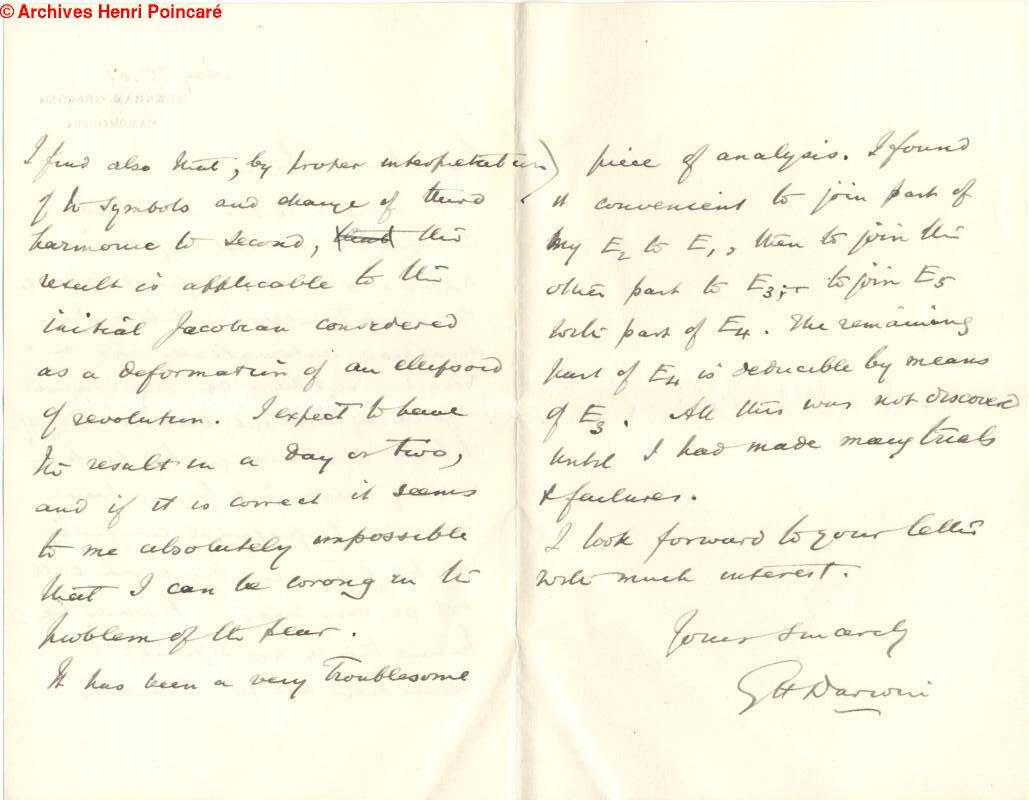 © Archives Henri Poincaré
I find also that, by proper interpretation
of the symbols and change of third
harmonic to second, this
result is applicable to the
initial Jacobian considered
as a deformation of an ellipsoid
of revolution. I expect to have
the result in a day or two,
and if it is correct it seems
to me absolutely impossible
that I can be wrong in the
problem of the pear.
It has been a very troublesome
piece of analysis. I found
it convenient to join part of
my E₂ to E₁, then to join the
other part to E₃; to join E₅
with part of E₄. The remaining
part of E₄ is deducible by means
of E₃. All this was not discovered
until I had made many trials
& failures.
I look forward to your letter
with much interest.
Yours sincerely
G H Darwin